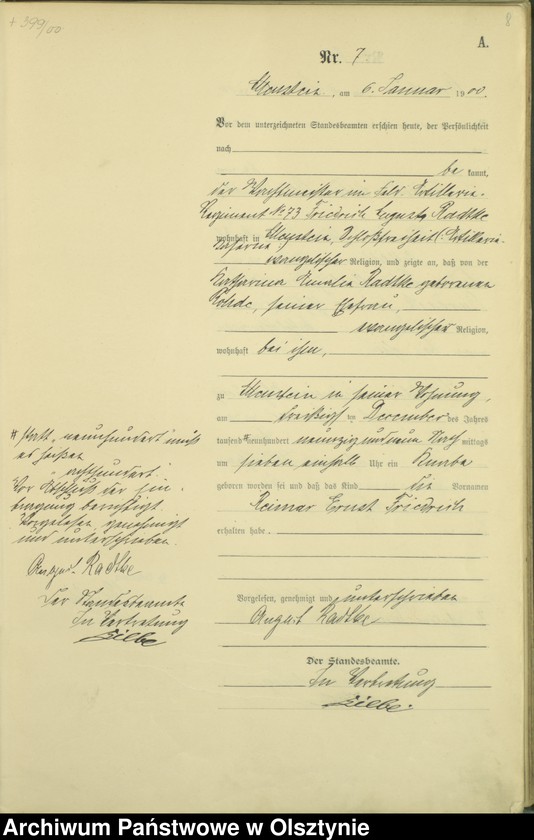 + 399/00
8
A.
Nr. 7
Allenstein, am 6. Januar 1900.
Vor dem unterzeichneten Standesbeamten erschien heute, der Persönlichkeit
nach
be kannt,
der Wachtmeister im Feld-Artillerie-
Regiment No 73 Friedrich August Radtke
wohnhaft in Allenstein, Artillerie-
Kaserne
evangelischer Religion, und zeigte an, daß von der
Katharina Emalie Radtke geborenen
Rohde, seiner Ehefrau,
evangelischer Religion,
wohnhaft bei ihm,
zu Allenstein in seiner Wohnung,
am dreißigsten December des Jahres
tausend # neunhundert neunzig und neun Nachmittags
um sieben einhalb Uhr ein Knabe
geboren worden sei und daß das Kind die Vornamen
Reimar Ernst Friedrich
erhalten habe.
# statt „neunhundert" muß
es heißen
„achthundert".
Vor Abschluß der Ein-
tragung berichtigt.
Vorgelesen, genehmigt
und unterschrieben.
August Radtke
Der Standesbeamte
In Vertretung
Vorgelesen, genehmigt und unterschrieben
August Radtke
Der Standesbeamte.
In Vertretung
Archiwum Państwowe w Olsztynie